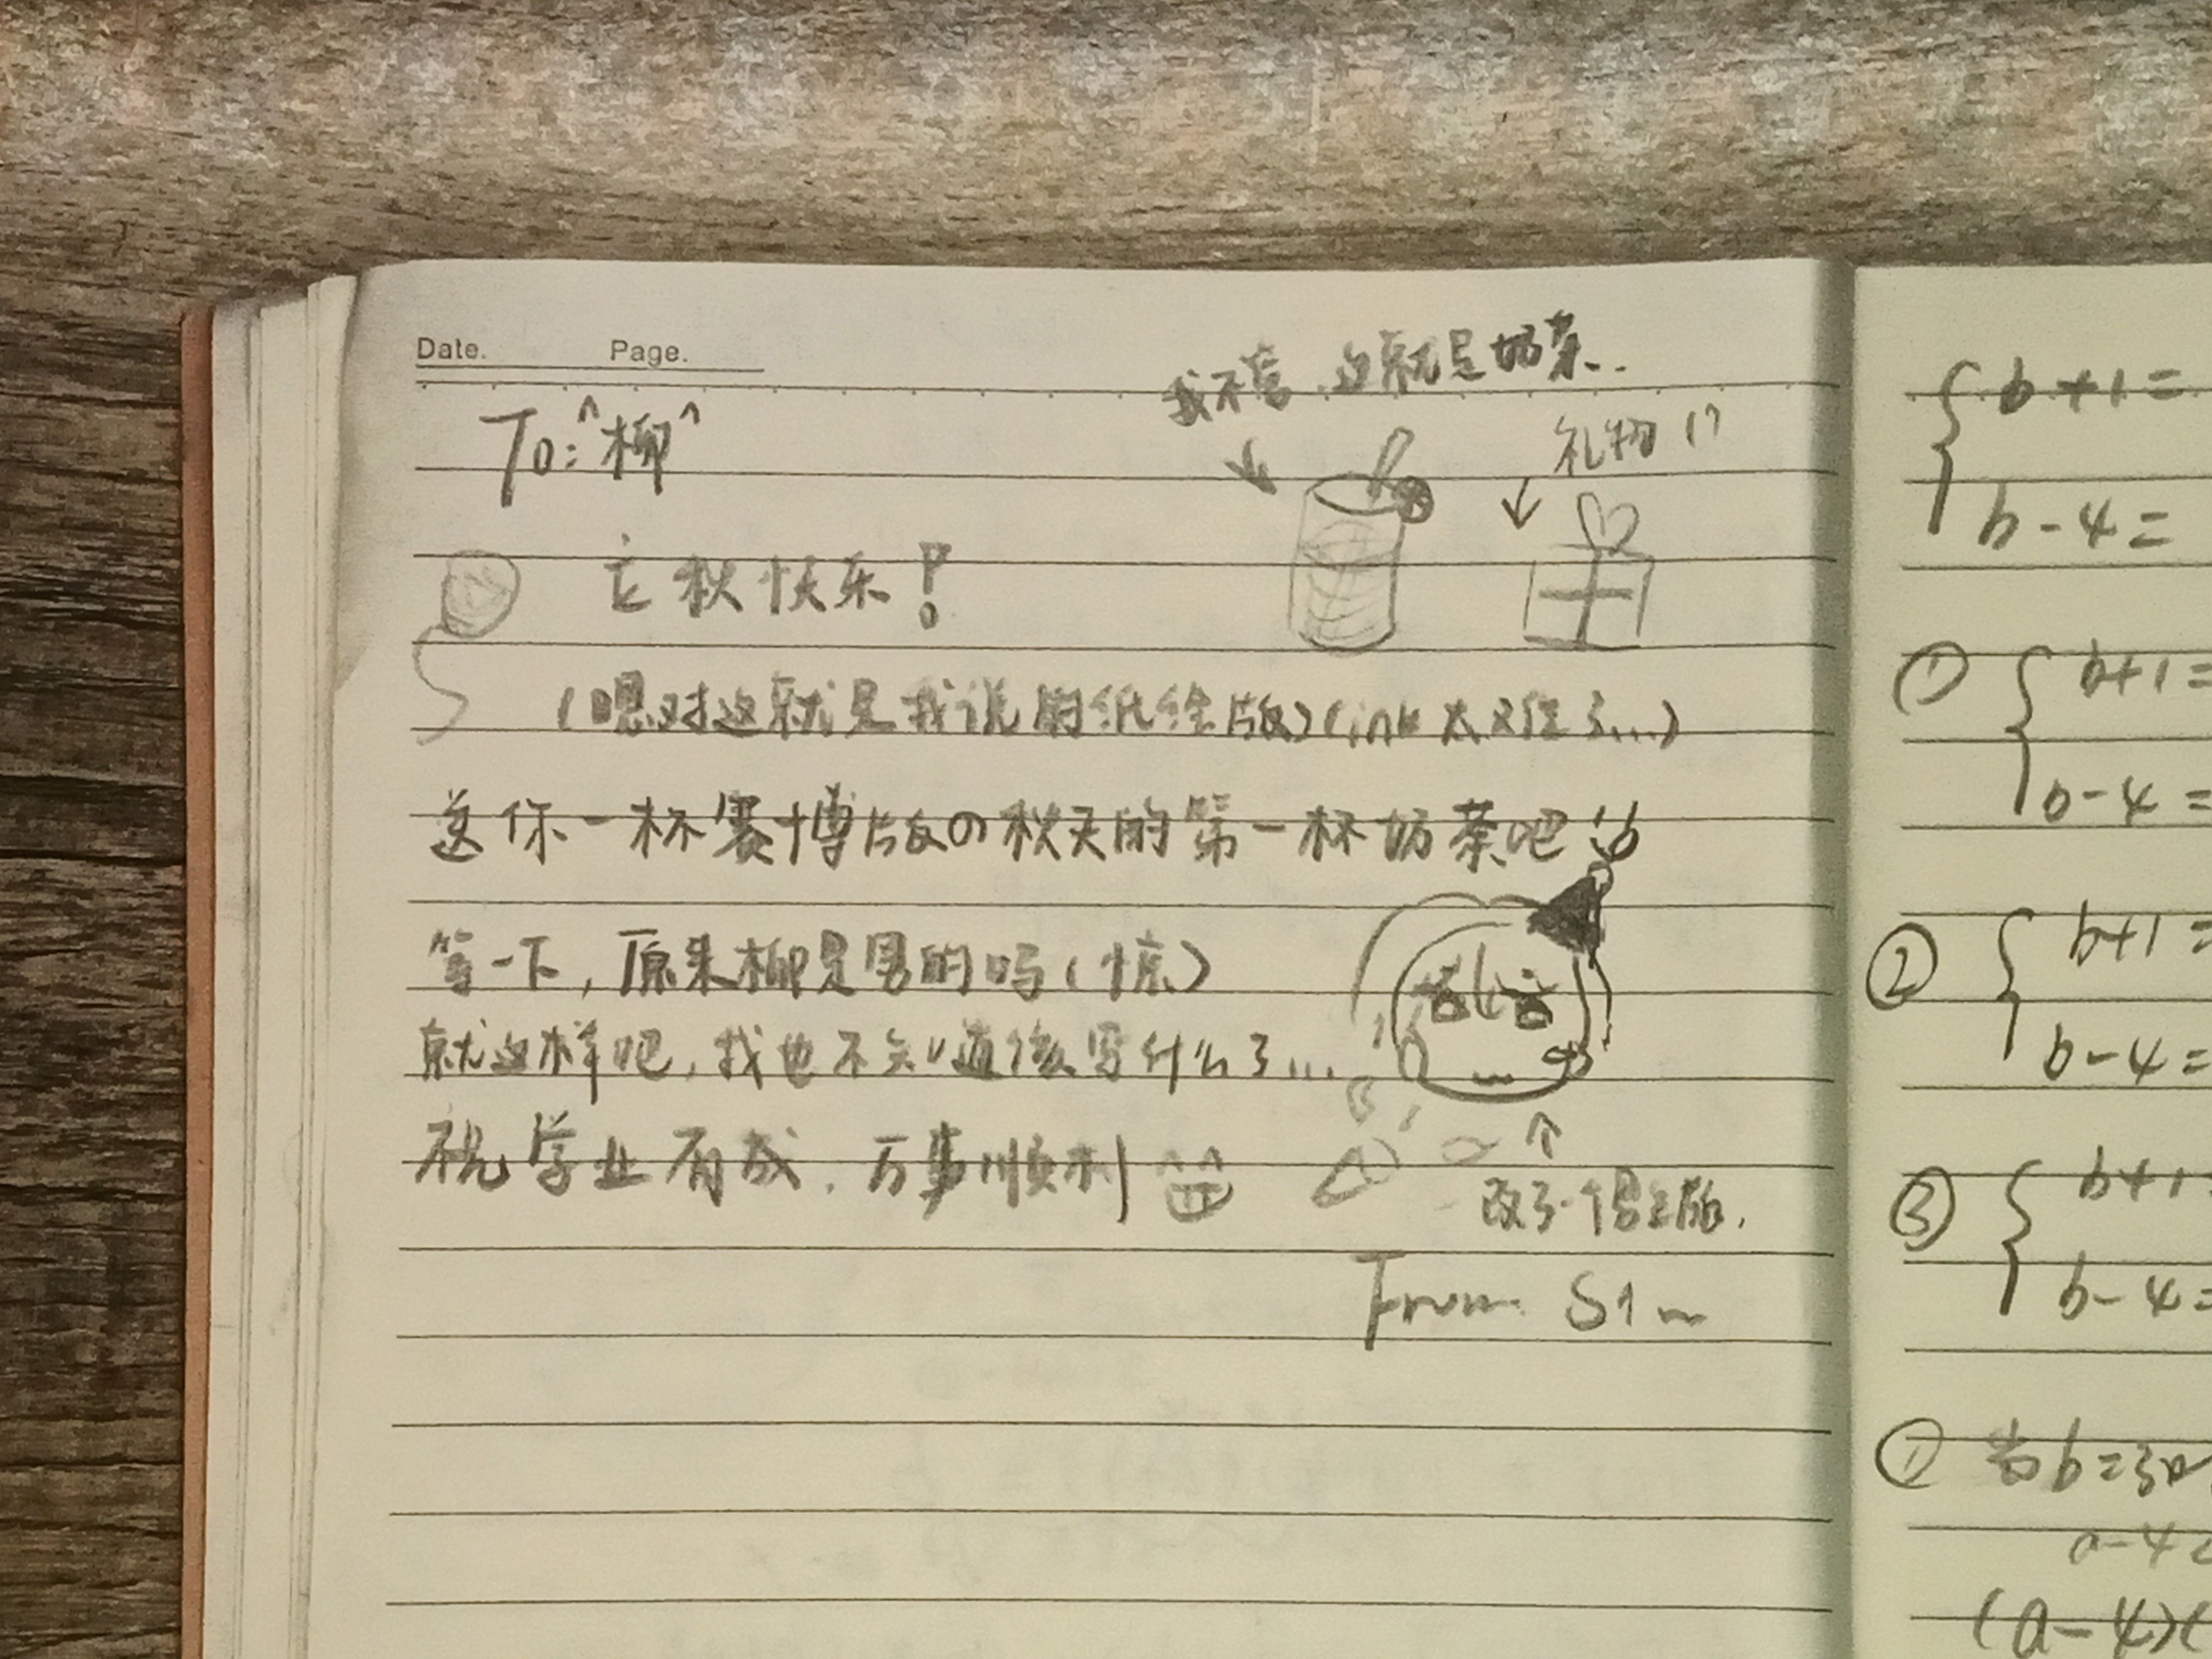 Date. Page.
我不管,这就是奶茶..
To: ^柳^
礼物 (?
立秋快乐!
(嗯对这就是我说的纸绘版)(ink太难了...)
送你一杯赛博版の秋天的第一杯奶茶吧
等一下,原来柳是男的吗(惊)
就这样吧,我也不知道该写什么了...
祝学业有成,万事顺利
改了一
版.
From S1~
b+1=
b-4=
① b+1=
b-4=
② b+1=
b-4=
③ b+1=
b-4=
① 当b=3a
a-4=
(a-4)(